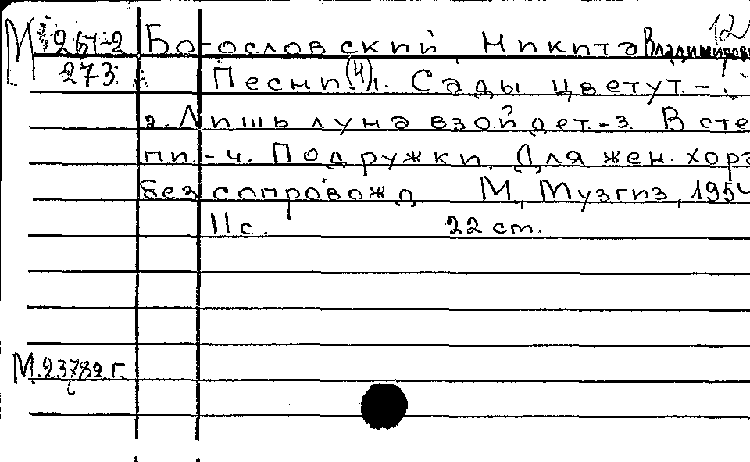 12
М 261-2 Богословский, Никита Владимирович
273 Песни (4) 1. Сады цветут -
2. Лишь луна взойдет. - 3. В сте-
пи. - 4. Подружки. Для жен. хора
без сопровожд М., Музгиз, 1954
11 с. 22 ст.
М.23782 г.